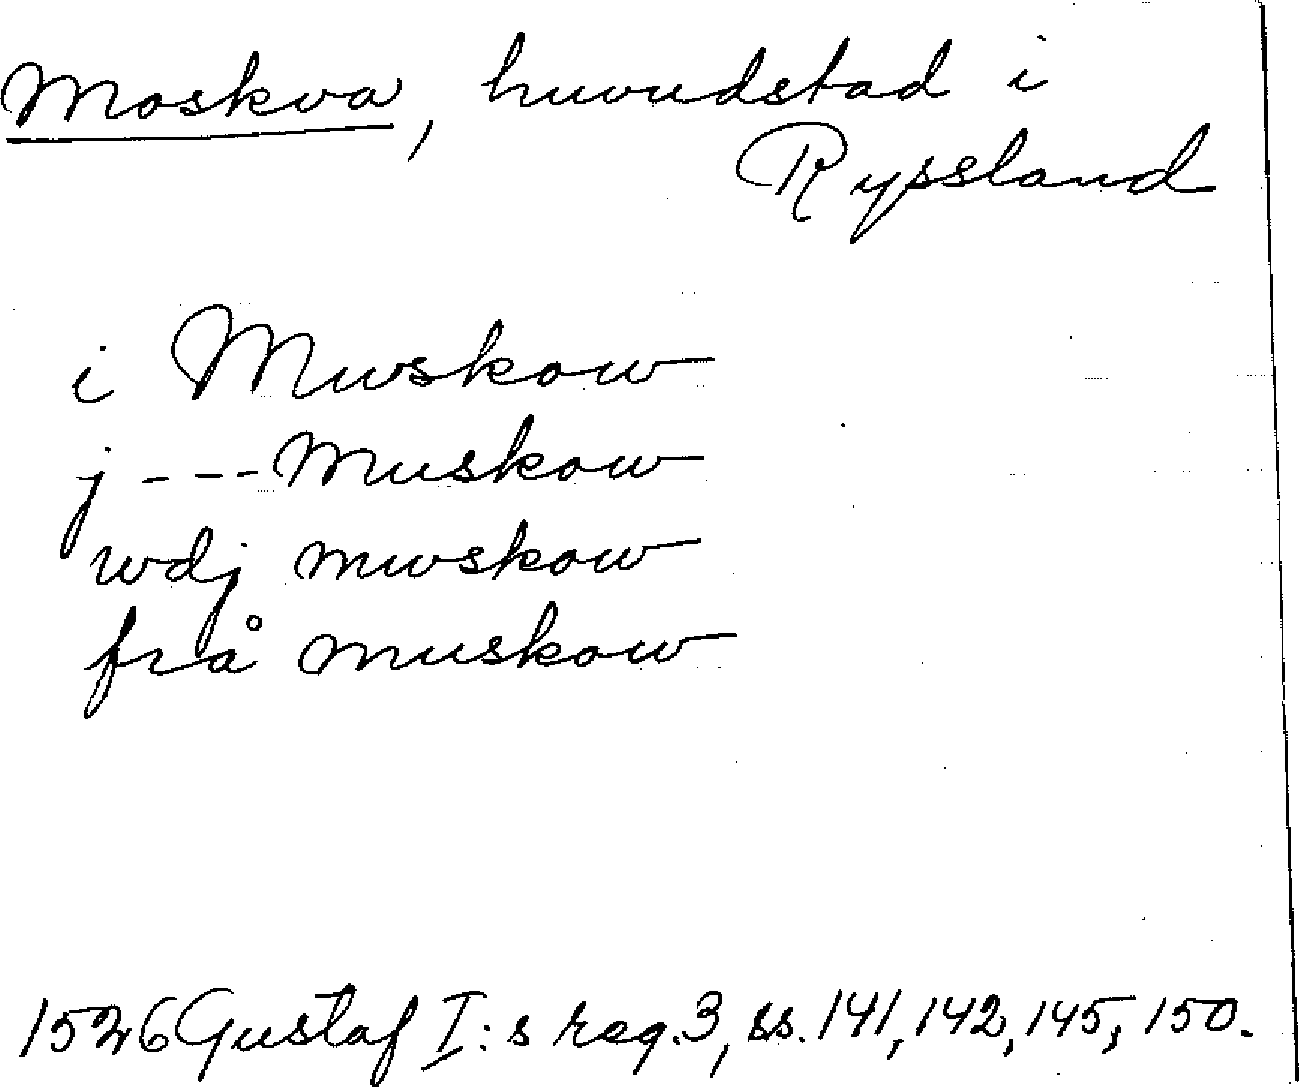 Moskva, huvudstad i
Ryssland
i Mwskow
j --- Muskow
wdj mwskow
frå muskow
1526 Gustaf I:s reg. 3, ss. 141, 142, 145, 150.